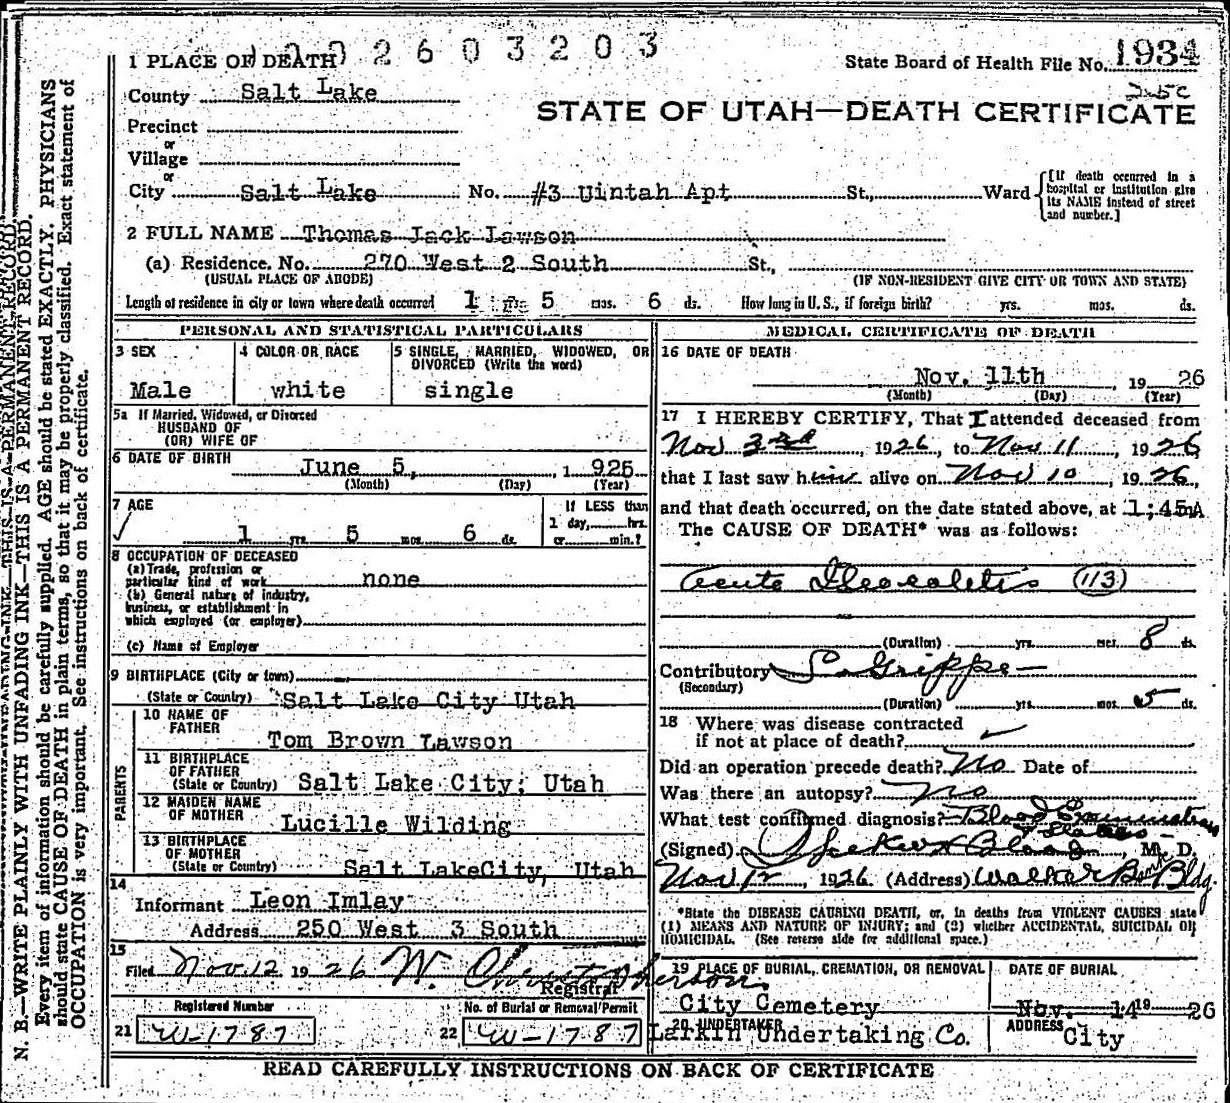 1 PLACE OF DEATH
2 6 0 3 2 0 3
State Board of Health File No. 1934
County Salt Lake
STATE OF UTAH—DEATH CERTIFICATE
Precinct
or
Village
or
City Salt Lake No. #3 Uintah Apt St., Ward
[If death occurred in a hospital or institution give its NAME instead of street and number.]
2 FULL NAME Thomas Jack Lawson
(a) Residence. No. 270 West 2 South St.,
(USUAL PLACE OF ABODE) (IF NON-RESIDENT GIVE CITY OR TOWN AND STATE)
Length of residence in city or town where death occurred 1 yrs. 5 mos. 6 ds. How long in U.S., if foreign birth? yrs. mos. ds.
PERSONAL AND STATISTICAL PARTICULARS
3 SEX
Male
4 COLOR OR RACE
white
5 SINGLE, MARRIED, WIDOWED, OR
DIVORCED (Write the word)
single
5a If Married, Widowed, or Divorced
HUSBAND OF
(OR) WIFE OF
6 DATE OF BIRTH June 5, 1 925
(Month) (Day) (Year)
7 AGE
1 yrs. 5 mos. 6 ds.
If LESS than
1 day, hrs.
or min.?
8 OCCUPATION OF DECEASED
(a) Trade, profession or
particular kind of work none
(b) General nature of industry,
business, or establishment in
which employed (or employer)
(c) Name of Employer
9 BIRTHPLACE (City or town)
(State or Country) Salt Lake City Utah
PARENTS
10 NAME OF
FATHER
Tom Brown Lawson
11 BIRTHPLACE
OF FATHER
(State or Country) Salt Lake City; Utah
12 MAIDEN NAME
OF MOTHER
Lucille Wilding
13 BIRTHPLACE
OF MOTHER
(State or Country) Salt LakeCity, Utah
14
Informant Leon Imlay
Address 250 West 3 South
15
Filed Nov. 12 19 26 W. Christopherson.
Registrar
Registered Number
No. of Burial or Removal Permit
21 W-1787
22 W-1787
MEDICAL CERTIFICATE OF DEATH
16 DATE OF DEATH
Nov. 11th, 19 26
(Month) (Day) (Year)
17 I HEREBY CERTIFY, That I attended deceased from
Nov 3rd, 1926, to Nov 11, 1926
that I last saw him alive on Nov 10, 1926,
and that death occurred, on the date stated above, at 1;45mA
The CAUSE OF DEATH* was as follows:
Acute Ileocolitis (113)
(Duration) yrs. mos. 8 ds.
Contributory La Grippe
(Secondary)
(Duration) yrs. mos. 5 ds.
18 Where was disease contracted
if not at place of death?
Did an operation precede death? No Date of
Was there an autopsy? No
What test confirmed diagnosis? Blood
(Signed) M. D.
Nov 12, 1926 (Address) Walker Bank Bldg.
*State the DISEASE CAUSING DEATH, or, in deaths from VIOLENT CAUSES state
(1) MEANS AND NATURE OF INJURY; and (2) whether ACCIDENTAL, SUICIDAL OR
HOMICIDAL. (See reverse side for additional space.)
19 PLACE OF BURIAL, CREMATION, OR REMOVAL
City Cemetery
DATE OF BURIAL
Nov. 14 19 26
20 UNDERTAKER
Larkin Undertaking Co.
ADDRESS
City
READ CAREFULLY INSTRUCTIONS ON BACK OF CERTIFICATE
N. B.—WRITE PLAINLY WITH UNFADING INK—THIS IS A PERMANENT RECORD.
Every item of information should be carefully supplied. AGE should be stated EXACTLY. PHYSICIANS
should state CAUSE OF DEATH in plain terms, so that it may be properly classified. Exact statement of
OCCUPATION is very important. See instructions on back of certificate.